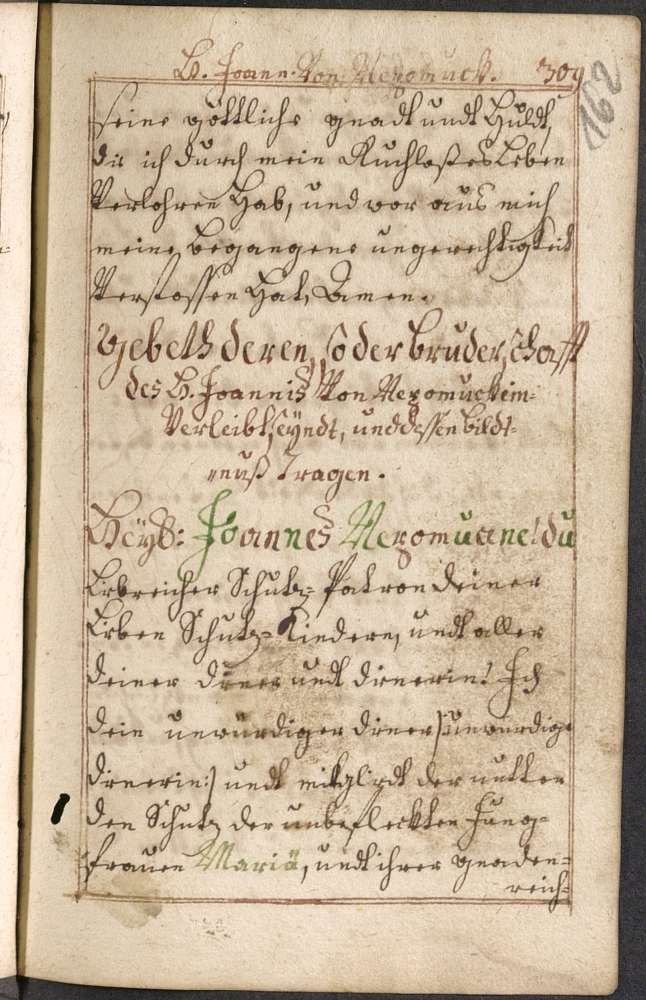 H. Joann. Von Nepomuck. 309
162
seine göttliche gnadt undt Huldt,
die ich durch mein Ruchloßes Leben
Verlohren Hab, und vor aus mich
meine begangene ungerechtigkeit
Verstossen Hat, Amen.
Gebeth deren, so der bruderschafft
des H. Joannis Von Nepomuck ein-
Verleibt seyndt, und dessen bildt-
nuß Tragen.
Heyl: Joannes Nepomucene! du
Liebreicher Schutz-Patron deiner
Lieben Schutz-Kindern, undt aller
deiner diener undt dienerin! Ich
dein unwürdiger diener/: unwürdige
dienerin :/ undt mitglidt der untter
den Schutz der unbefleckten Jung-
frauen Mariä, undt ihrer gnaden-
reich-